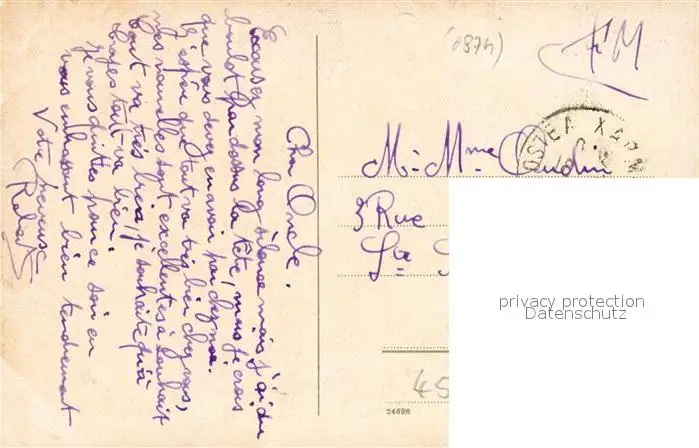 Cher Oncle.
Excusez mon long silence mais j'ai du
boulot par dessus la tête, mais je crois
que vous devez en avoir par chez moi.
J'espère que tout va très bien chez vous,
mes nouvelles sont excellentes à souhait
tout va très bien, je souhaite qu'à
tout va bien.
Je vous quitte pour ce soir en
vous embrassant bien tendrement
Votre neveu
Robert
(0874)
F M
OSTEA XAP
M. Mme
3 Rue
La
45
24698
privacy protection
Datenschutz